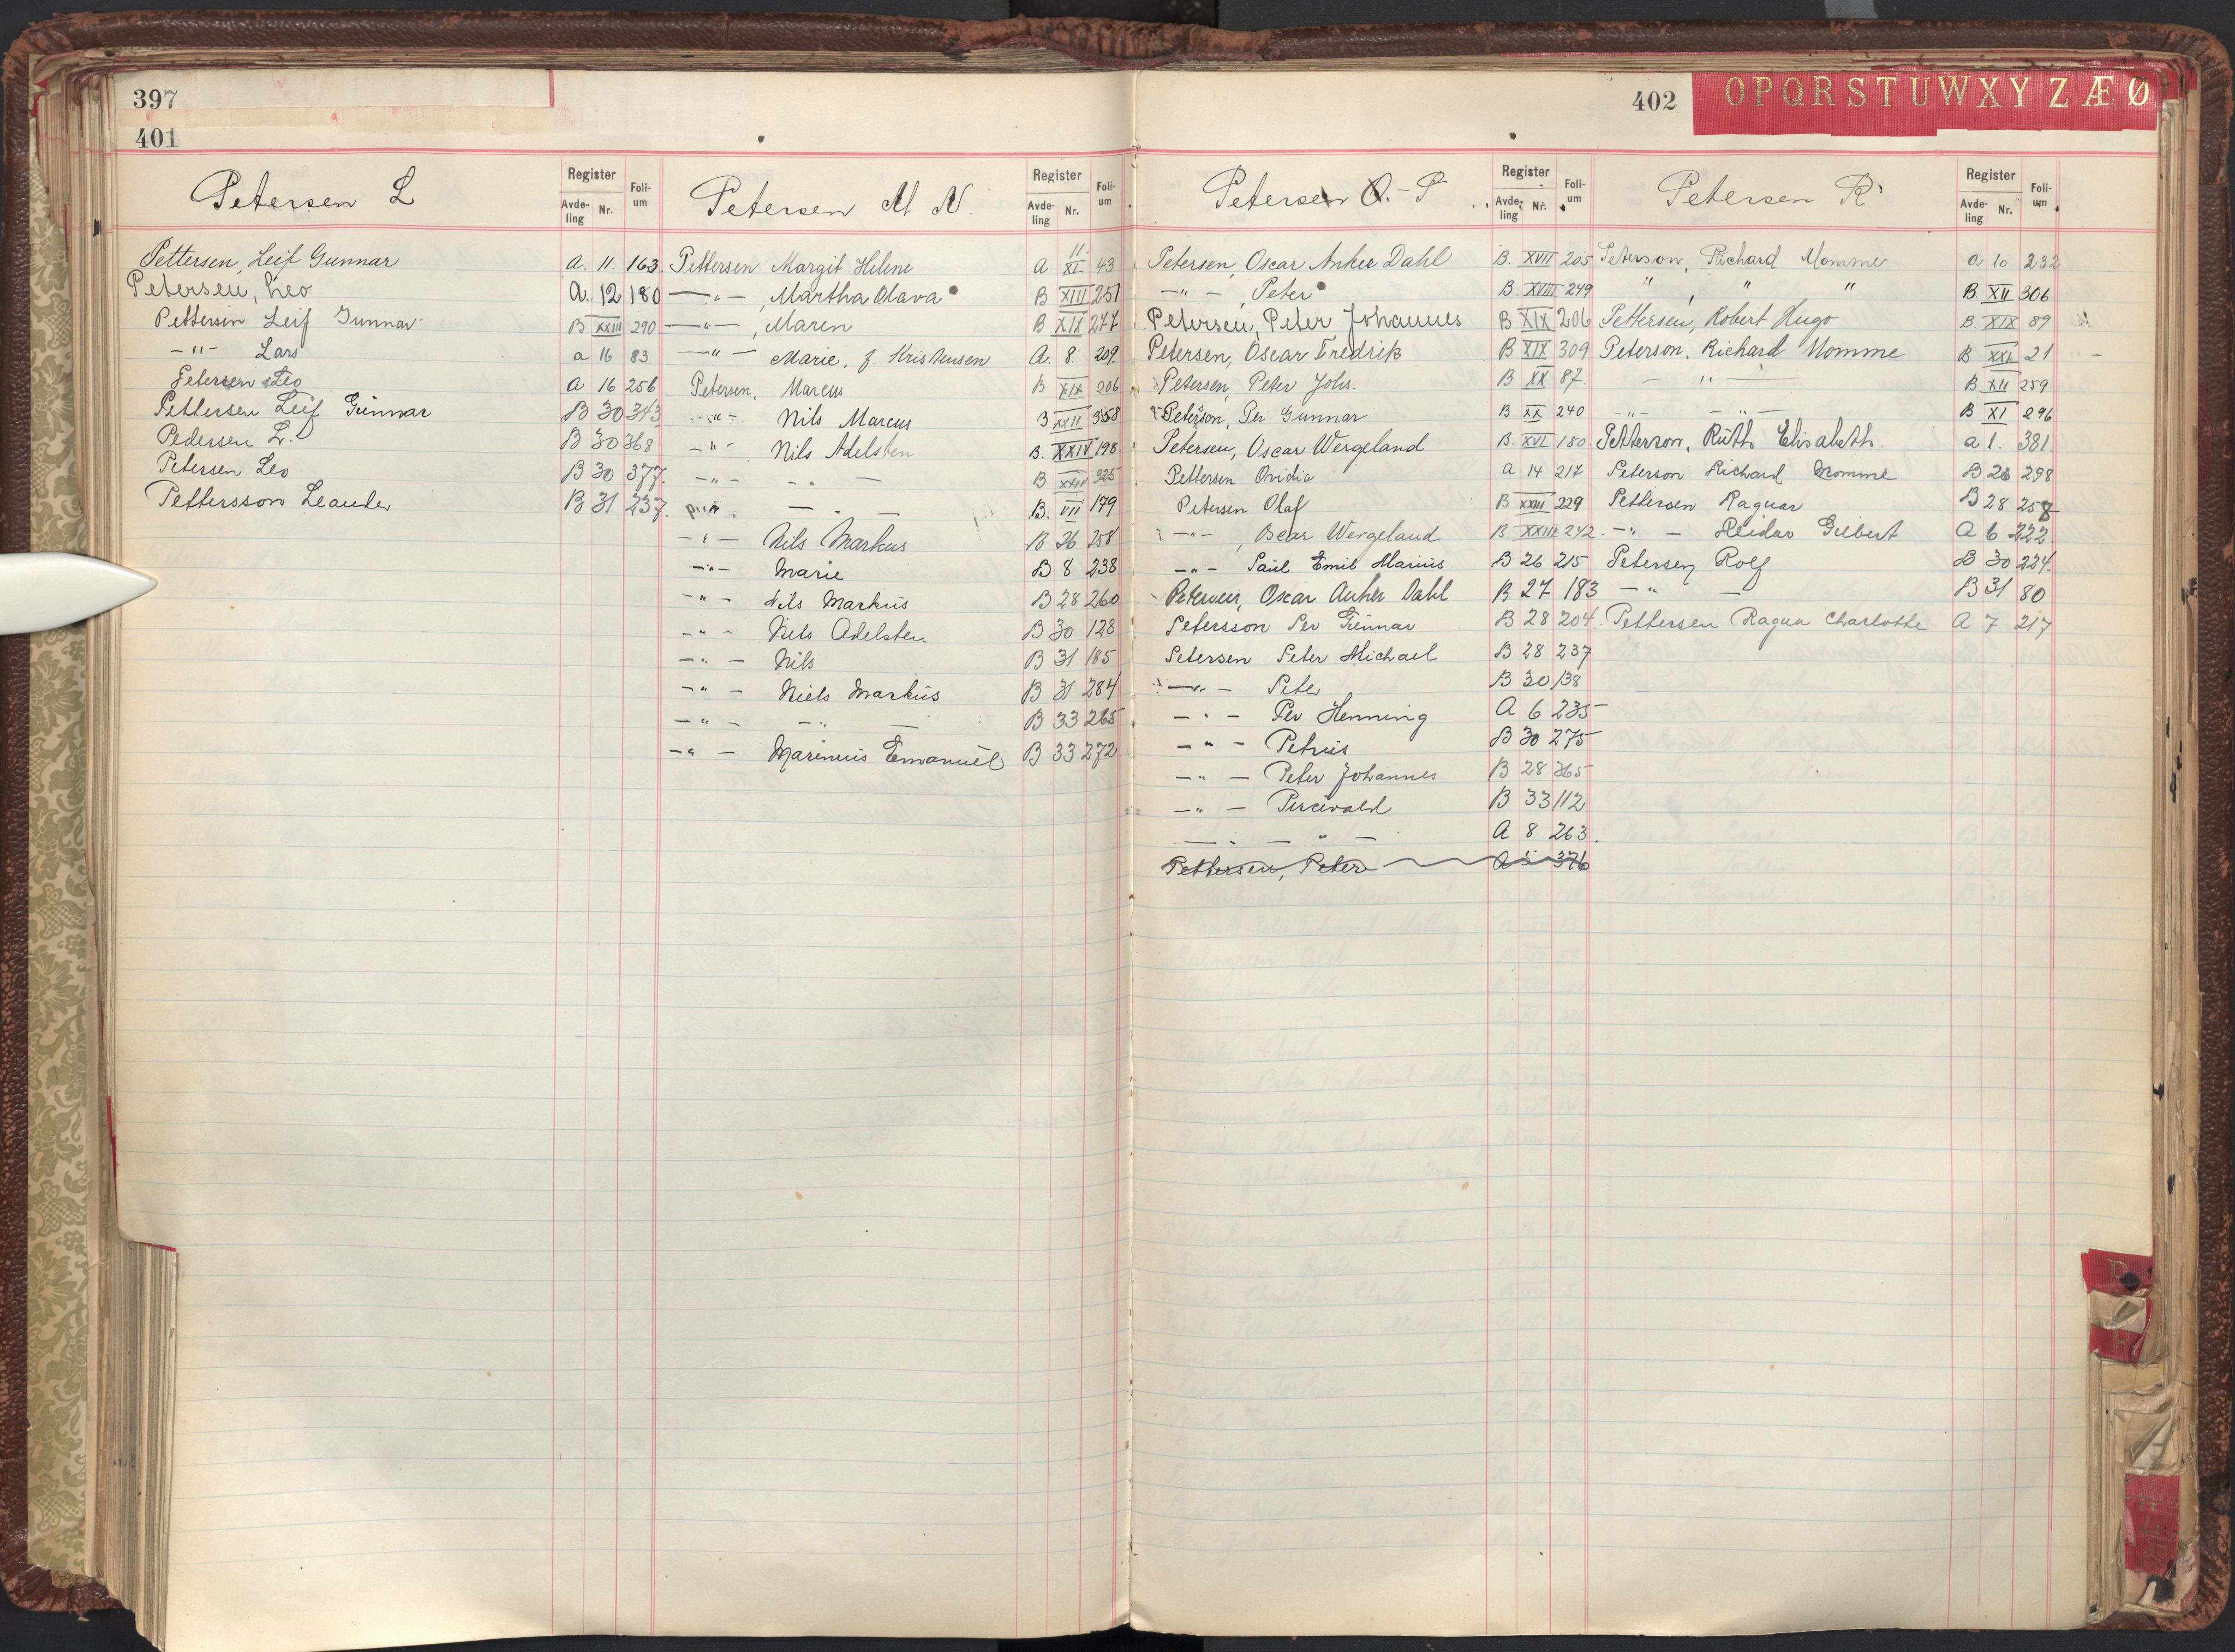 397
401
Petersen L
Register
Avde-ling Nr. Foli-um
Pettersen, Leif Gunnar A. 11. 163.
Petersen, Leo A. 12 180
Pettersen Leif Gunnar B XXIII 290
—"— Lars a 16 83
Petersen Leo a 16 256
Pettersen Leif Gunnar B 30 343
Pedersen L. B 30 368
Petersen Leo B 30 377.
Pettersson Leander B 31 237.
Petersen M N.
Register
Avde-ling Nr. Foli-um
Pettersen Margit Helene A 11 XI 43
—"— , Martha Olava B XIII 251
—"— , Maren B XIX 277
—"— Marie, f. Kristensen A. 8. 209.
Petersen, Marcus B XIX 206
—"— Nils Marcus B XXII 358
—"— Nils Adelsten B. XXIV 198.
—"— —"— B XXIV 325
—"— —"— B. VII 179
—"— Nils Markus B 26 258
—"— Marie B 8 238
—"— Nils Markus B 28 260
—"— Nils Adelsten B 30 128
—"— Nils B 31 185
—"— Niels Markus B 31 284
—"— —"— B 33 265
—"— Marinius Emanuel B 33 272
402
O P Q R S T U W X Y Z Æ Ø
Petersen O.-P
Register
Avde-ling Nr. Foli-um
Petersen, Oscar Anker Dahl B. XVII 205
—"— , Peter B. XVIII 249
Petersen, Peter Johannes B XIX 206
Petersen, Oscar Fredrik B XIX 309
Petersen, Peter Johs. B XX 87.
Peterson, Per Gunnar B XX 240
Petersen, Oscar Wergeland B. XVI 180
Pettersen Ovidia a 14 217
Petersen Olaf B XXIII 229
—"— , Oscar Wergeland B XXIII 242.
—"— Paul Emil Marius B 26 215
Petersen, Oscar Anker Dahl B 27 183
Petersson Per Gunnar B 28 204.
Petersen Peter Michael B 28 237
—"— Peter B 30 138
—"— Per Henning A 6 235
—"— Petrus B 30 275
—"— Peter Johannes B 28 365
—"— Percivald B 33 112
—"— —"— A 8 263.
Pettersen, Peter 376
Petersen R
Register
Avde-ling Nr. Foli-um
Peterson, Richard Momme a 10 232
" , " " B. XII 306
Pettersen, Robert Hugo B. XIX 89
Peterson, Richard Momme B XXI 21
—"— B XII 259
—"— —"— B XI 296
Petterson, Ruth Elisabeth. a 1. 381.
Peterson Richard Momme B 26 298
Pettersen Ragnar B 28 258
—"— Reidar Gilbert A 6 222
Petersen Rolf B 30 224.
—"— — B 31 80
Pettersen Ragna Charlotte A 7 217